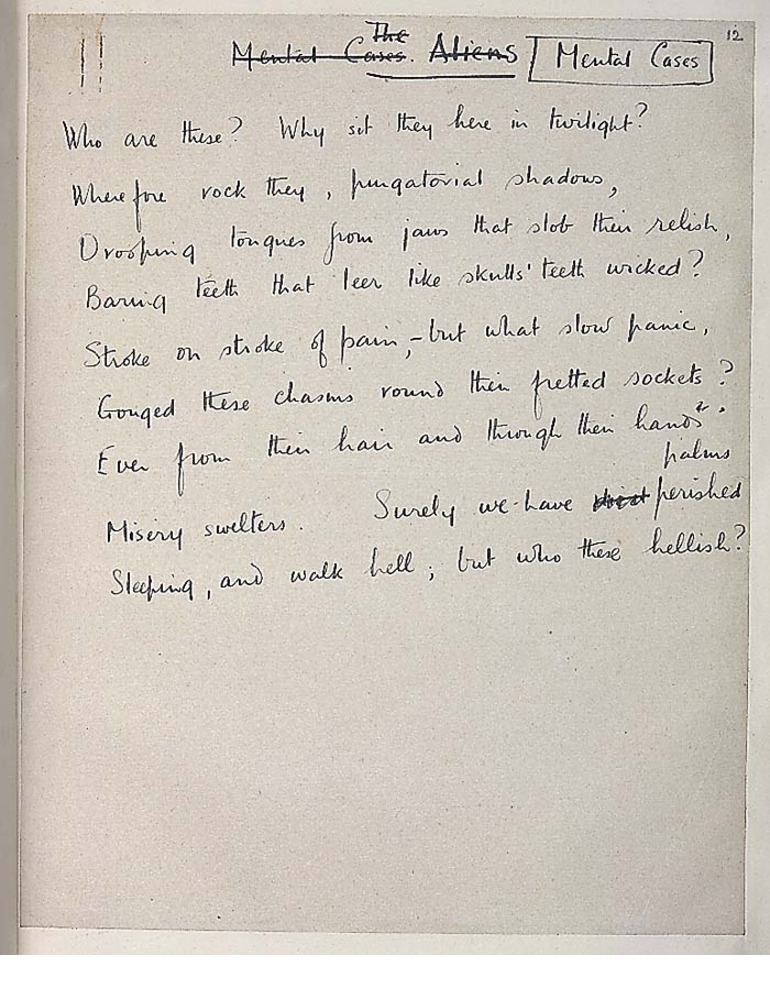 12
The
Mental Cases. Aliens Mental Cases
Who are these? Why sit they here in twilight?
Wherefore rock they, purgatorial shadows,
Drooping tongues from jaws that slob their relish,
Baring teeth that leer like skulls' teeth wicked?
Stroke on stroke of pain,- but what slow panic,
Gouged these chasms round their fretted sockets?
Ever from their hair and through their hands'
palms
Misery swelters. Surely we have died perished
Sleeping, and walk hell; but who these hellish?